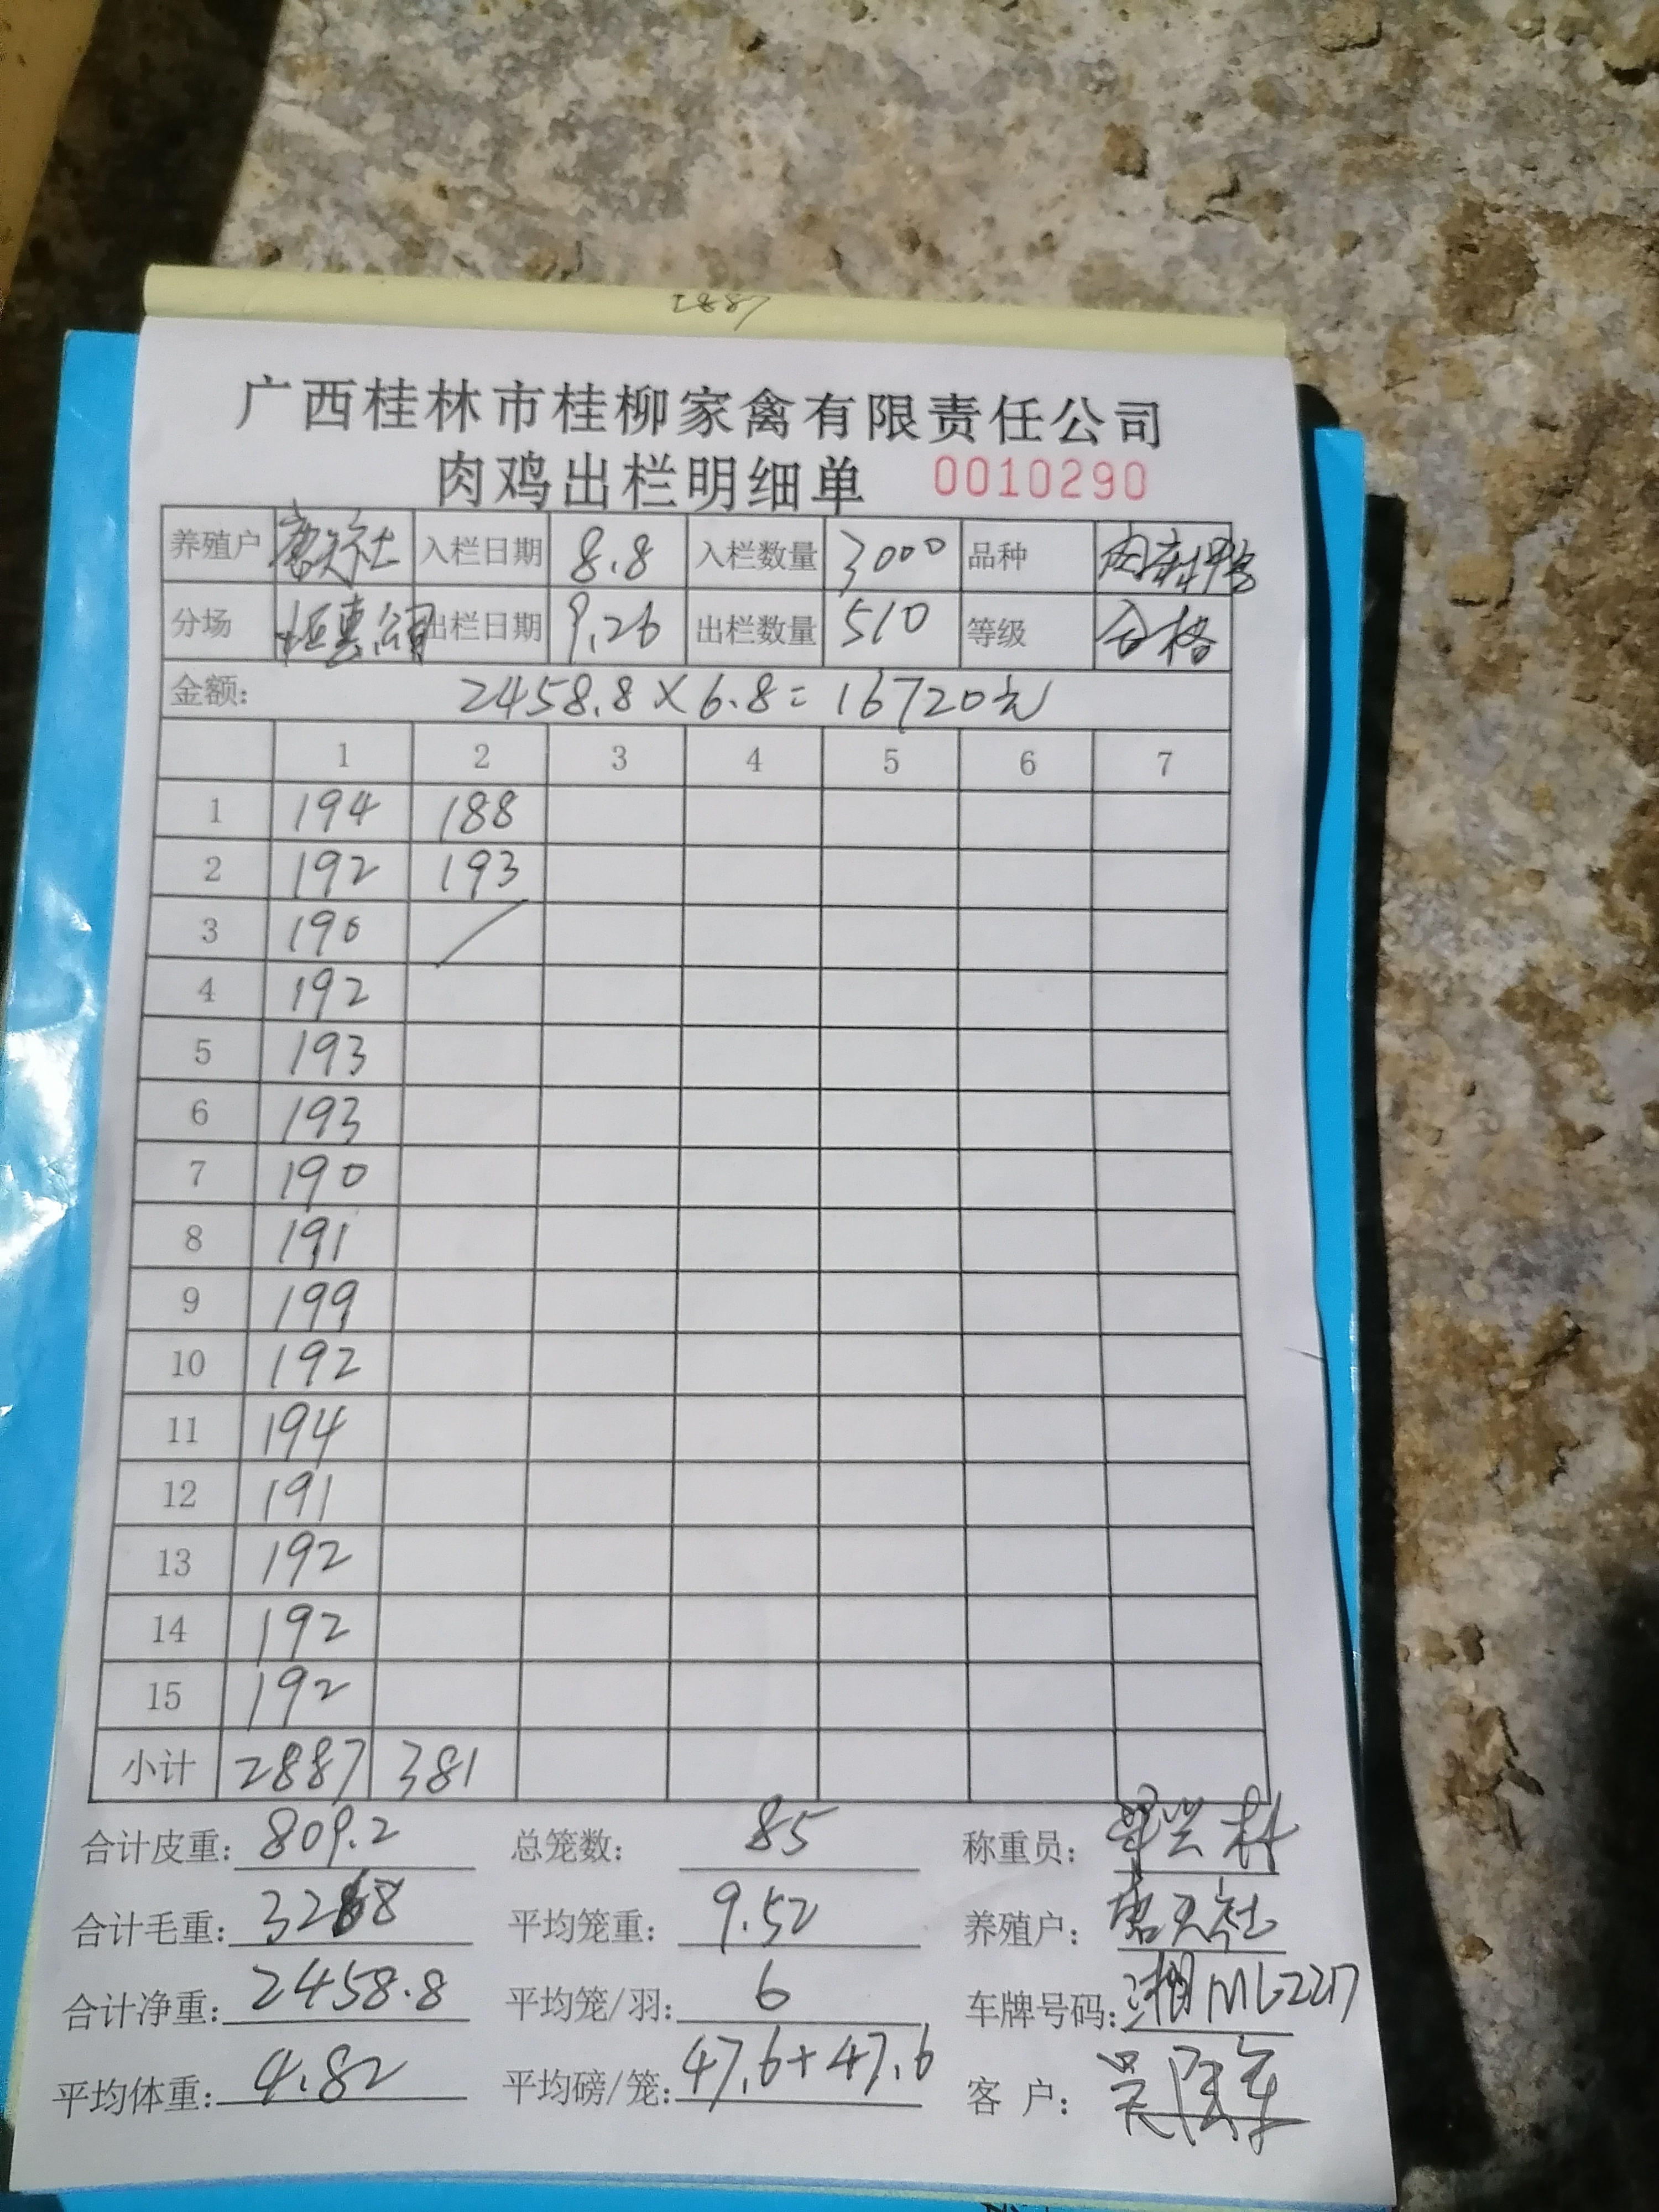 2887
广西桂林市桂柳家禽有限责任公司
肉鸡出栏明细单 0010290
养殖户 唐天社 入栏日期 8.8 入栏数量 3000 品种 肉麻鸭
分场 恒惠 出栏日期 9.26 出栏数量 510 等级 合格
金额: 2458.8×6.8=16720元
1 2 3 4 5 6 7
1 194 188
2 192 193
3 190 /
4 192
5 193
6 193
7 190
8 191
9 199
10 192
11 194
12 191
13 192
14 192
15 192
小计 2887 381
合计皮重: 809.2 总笼数: 85 称重员:
合计毛重: 3268 平均笼重: 9.52 养殖户: 唐天社
合计净重: 2458.8 平均笼/羽: 6 车牌号码: 湘
平均体重: 4.82 平均磅/笼: 47.6+47.6 客 户: 吴